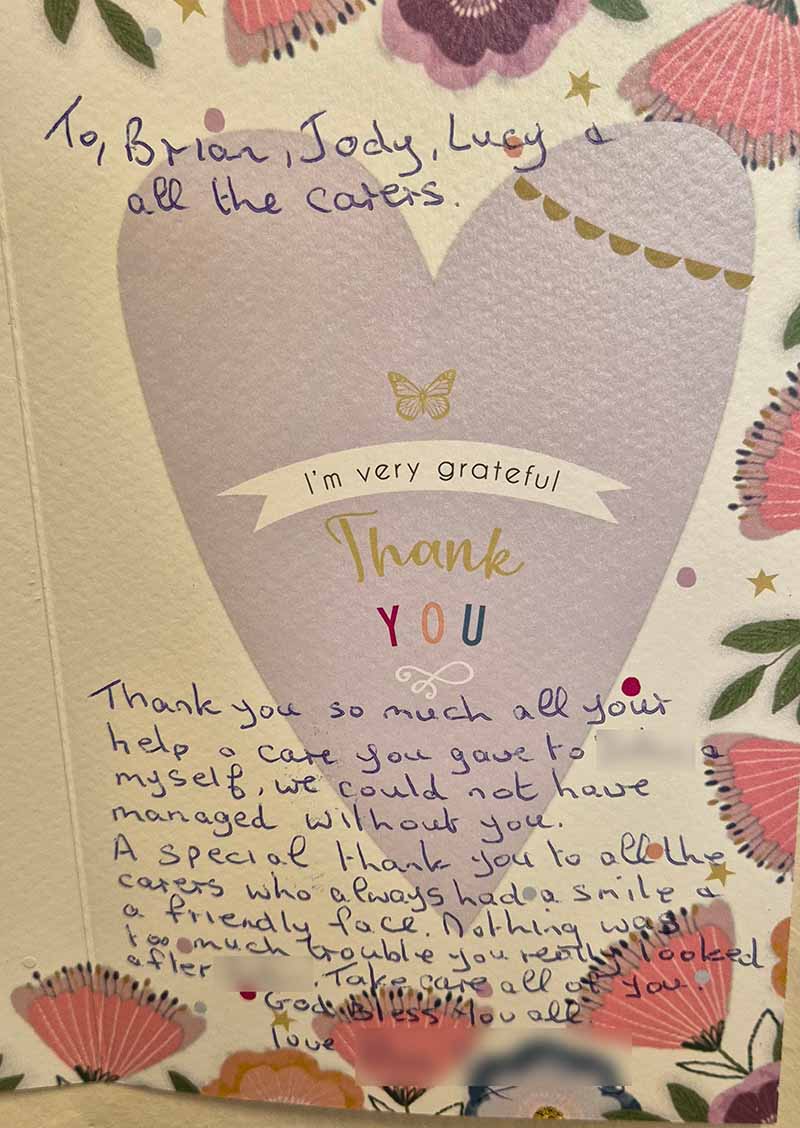 To, Brian, Jody, Lucy &
all the carers.
I'm very grateful
Thank
YOU
Thank you so much all your
help & care you gave to &
myself, we could not have
managed without you.
A special thank you to all the
carers who always had a smile &
a friendly face. Nothing was
too much trouble you really looked
after . Take care all of you.
God Bless You all.
love